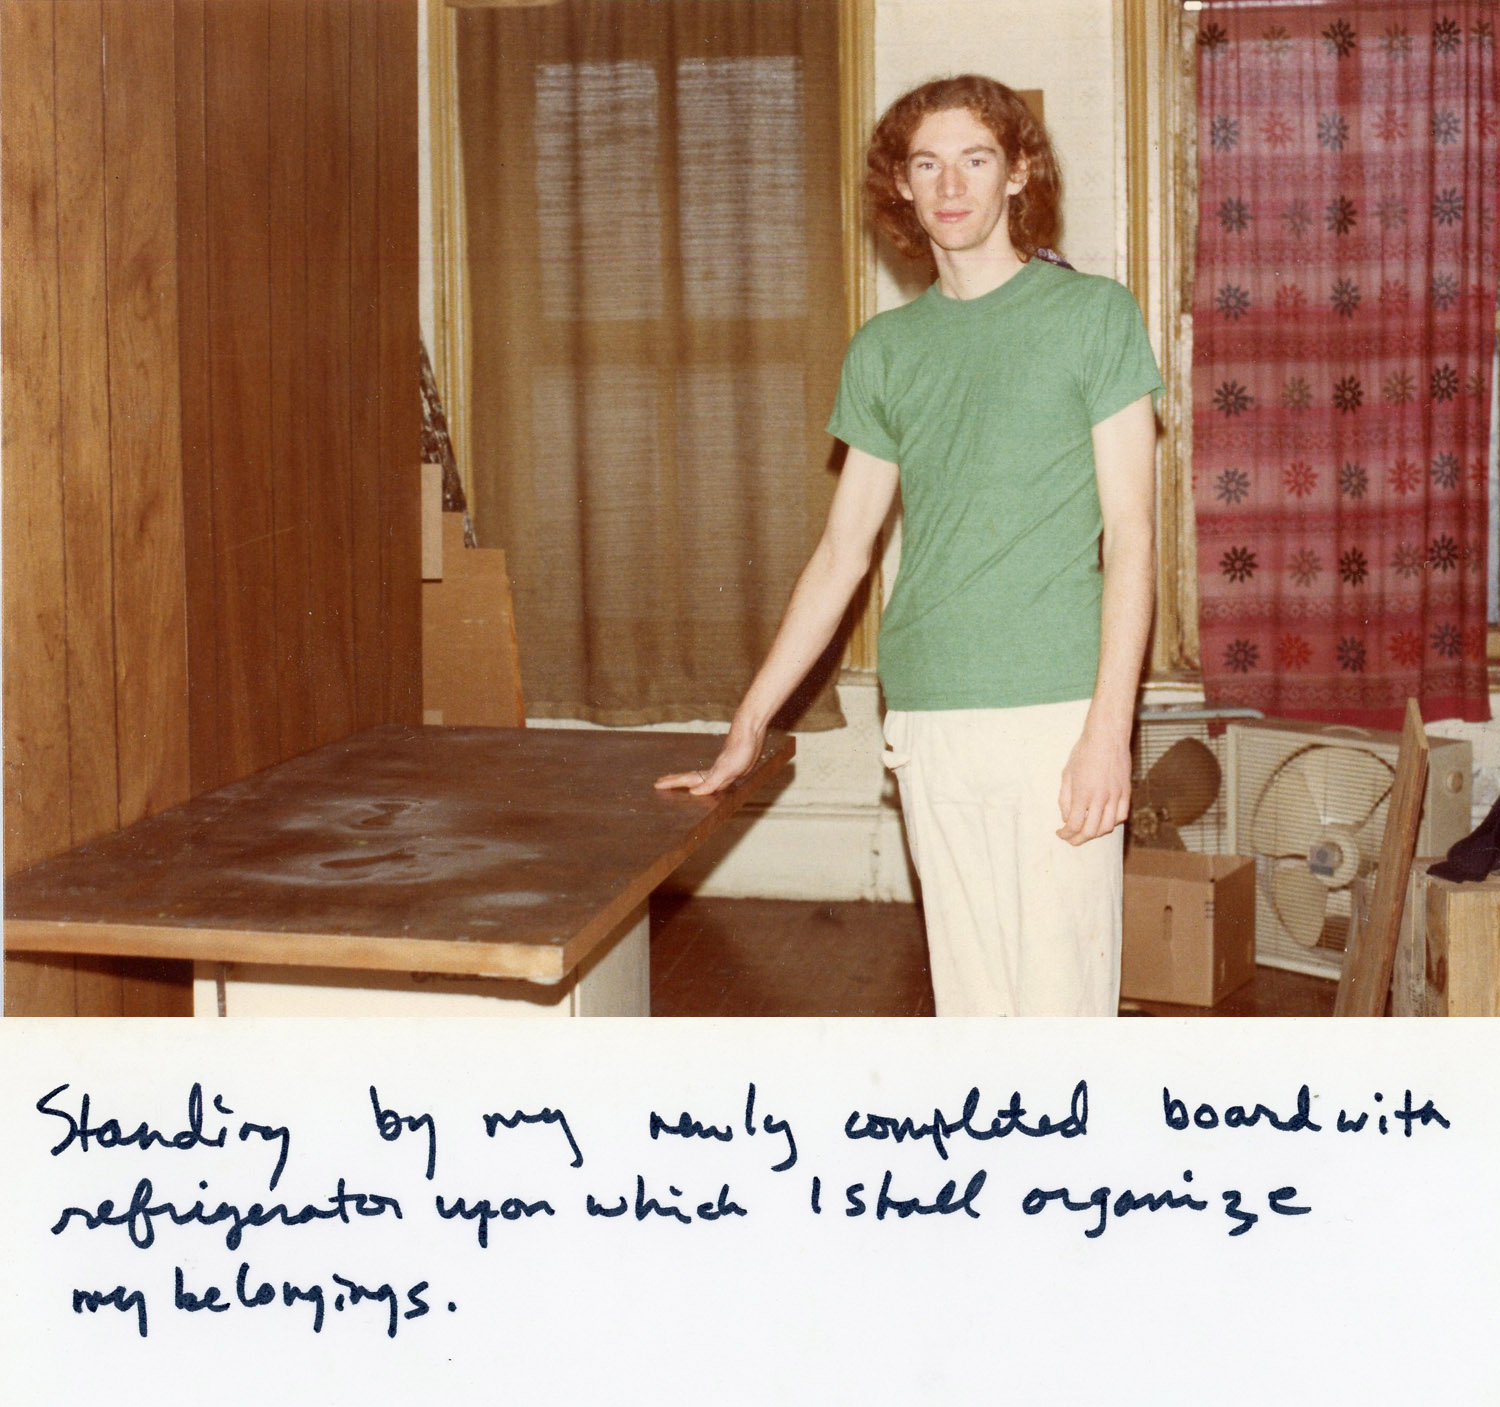 Standing by my newly completed board with
refrigerator upon which I shall organize
my belongings.